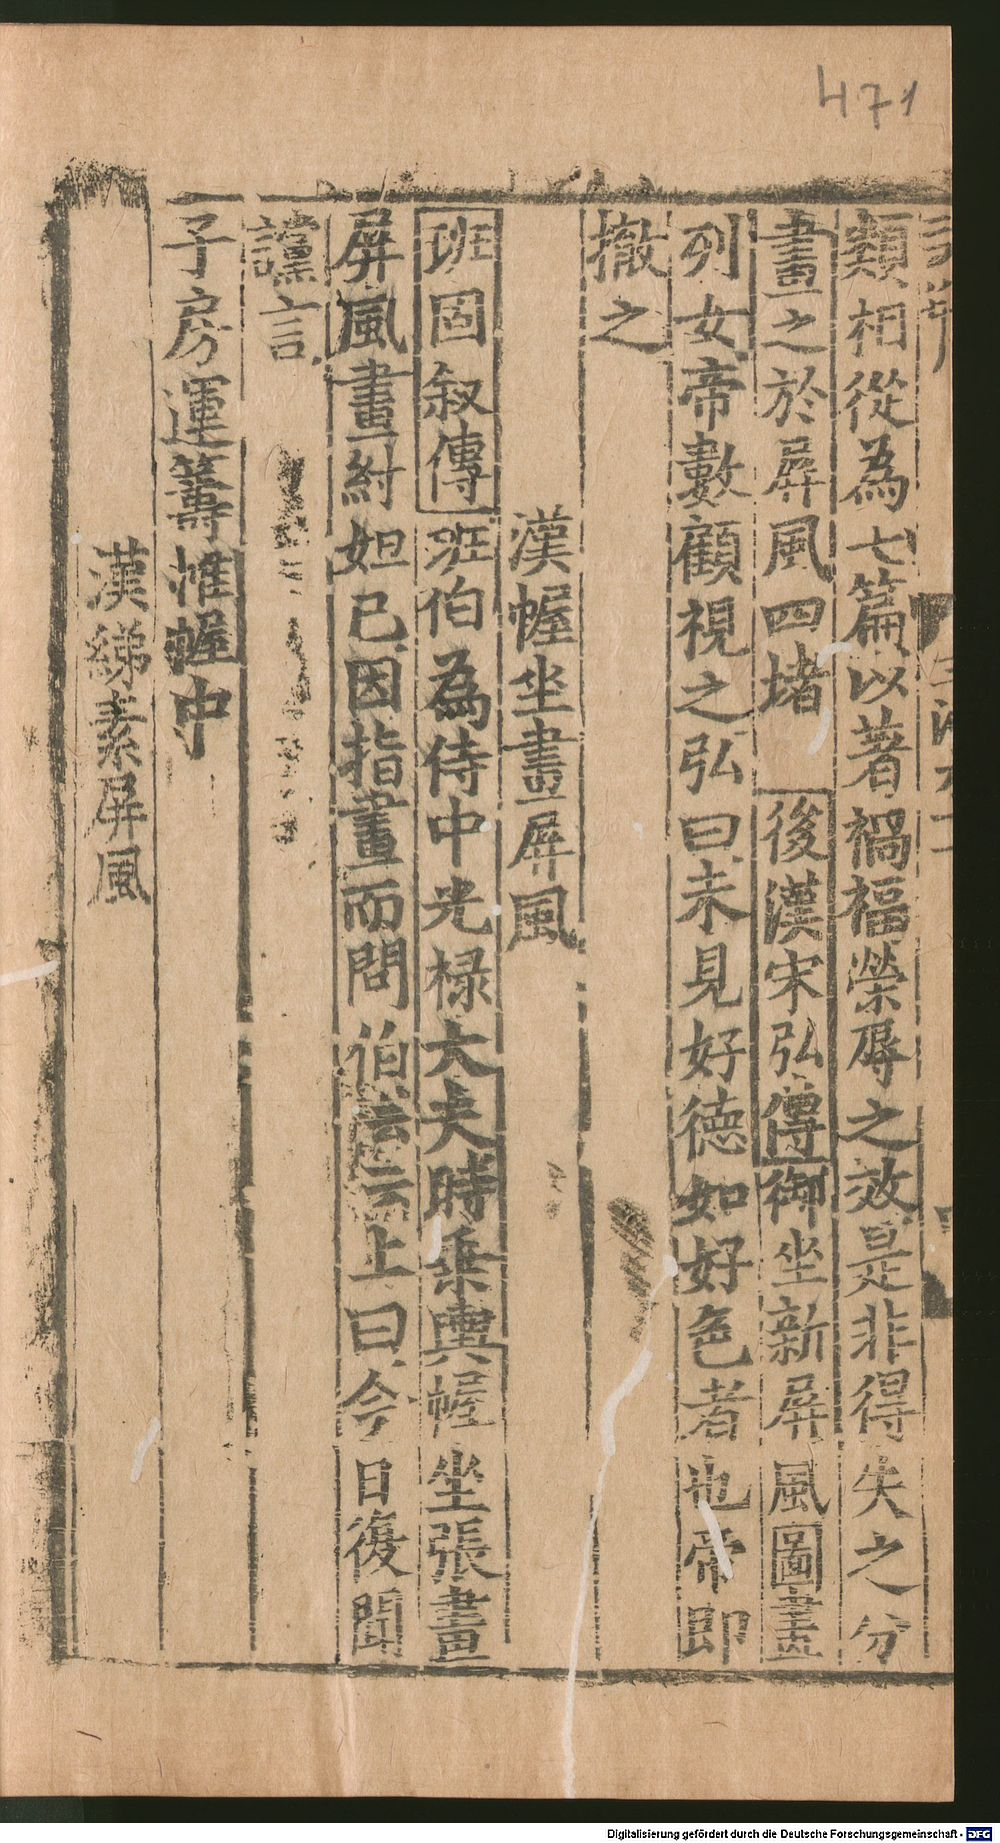 471
類相從為七篇以著禍福榮辱之效是非得失之分
畫之於屏風四堵 後漢宋弘傳御坐新屏風圖畫
列女帝數顧視之弘曰未見好德如好色者也帝即
撤之
漢幄坐畫屏風
班固叙傳班伯為侍中光禄大夫時乗輿幄坐張畫
屏風畫紂妲已因指畫而問伯云云上曰今日復聞
讜言
子房運籌帷幄中
漢綈素屏風
Digitalisierung gefördert durch die Deutsche Forschungsgemeinschaft - DFG